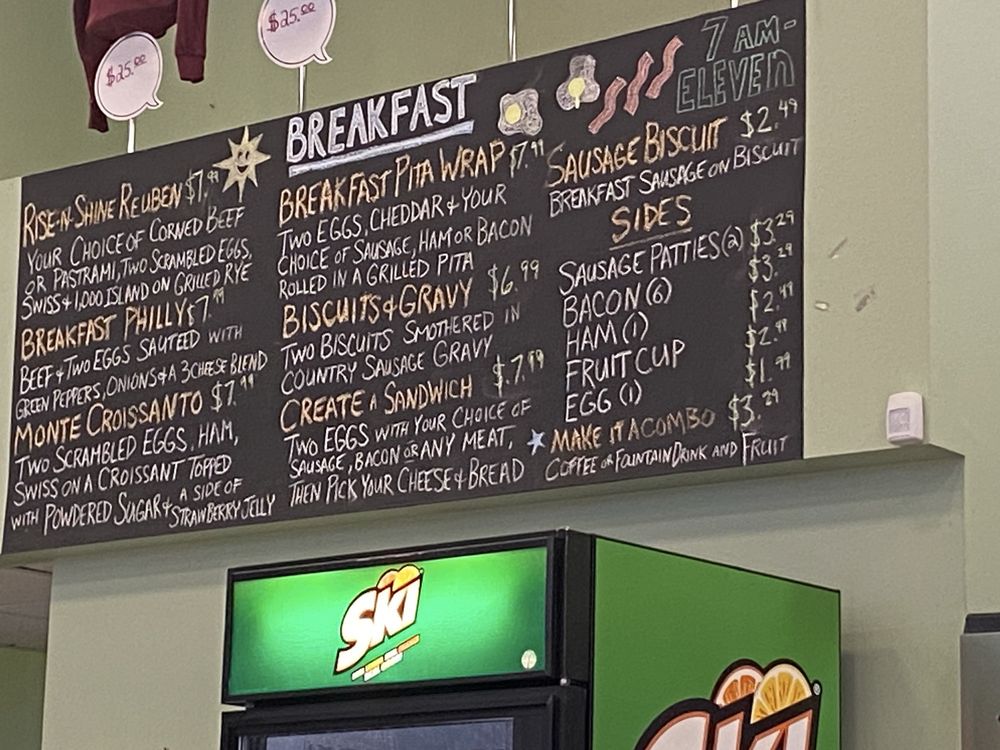 $25.00
$25.00
BREAKFAST
7 AM-
ELEVEN
RISE-N-SHINE REUBEN $7.99
YOUR CHOICE OF CORNED BEEF
OR PASTRAMI, TWO SCRAMBLED EGGS,
SWISS & 1,000 ISLAND ON GRILLED RYE
BREAKFAST PHILLY $7.99
BEEF & TWO EGGS SAUTEED WITH
GREEN PEPPERS, ONIONS & A 3 CHEESE BLEND
MONTE CROISSANTO $7.99
TWO SCRAMBLED EGGS, HAM,
SWISS ON A CROISSANT TOPPED
WITH POWDERED SUGAR & A SIDE OF
STRAWBERRY JELLY
BREAKFAST PITA WRAP $7.99
TWO EGGS, CHEDDAR & YOUR
CHOICE OF SAUSAGE, HAM OR BACON
ROLLED IN A GRILLED PITA
BISCUITS & GRAVY $6.99
TWO BISCUITS SMOTHERED IN
COUNTRY SAUSAGE GRAVY
CREATE A SANDWICH $.7.99
TWO EGGS WITH YOUR CHOICE OF
SAUSAGE, BACON OR ANY MEAT,
THEN PICK YOUR CHEESE & BREAD
SAUSAGE BISCUIT $2.49
BREAKFAST SAUSAGE ON BISCUIT
SIDES
SAUSAGE PATTIES (2) $3.29
BACON (6) $3.29
HAM (1) $2.99
FRUIT CUP $2.99
EGG (1) $1.99
MAKE IT A COMBO $3.29
COFFEE OR FOUNTAIN DRINK AND FRUIT
Ski
Ski